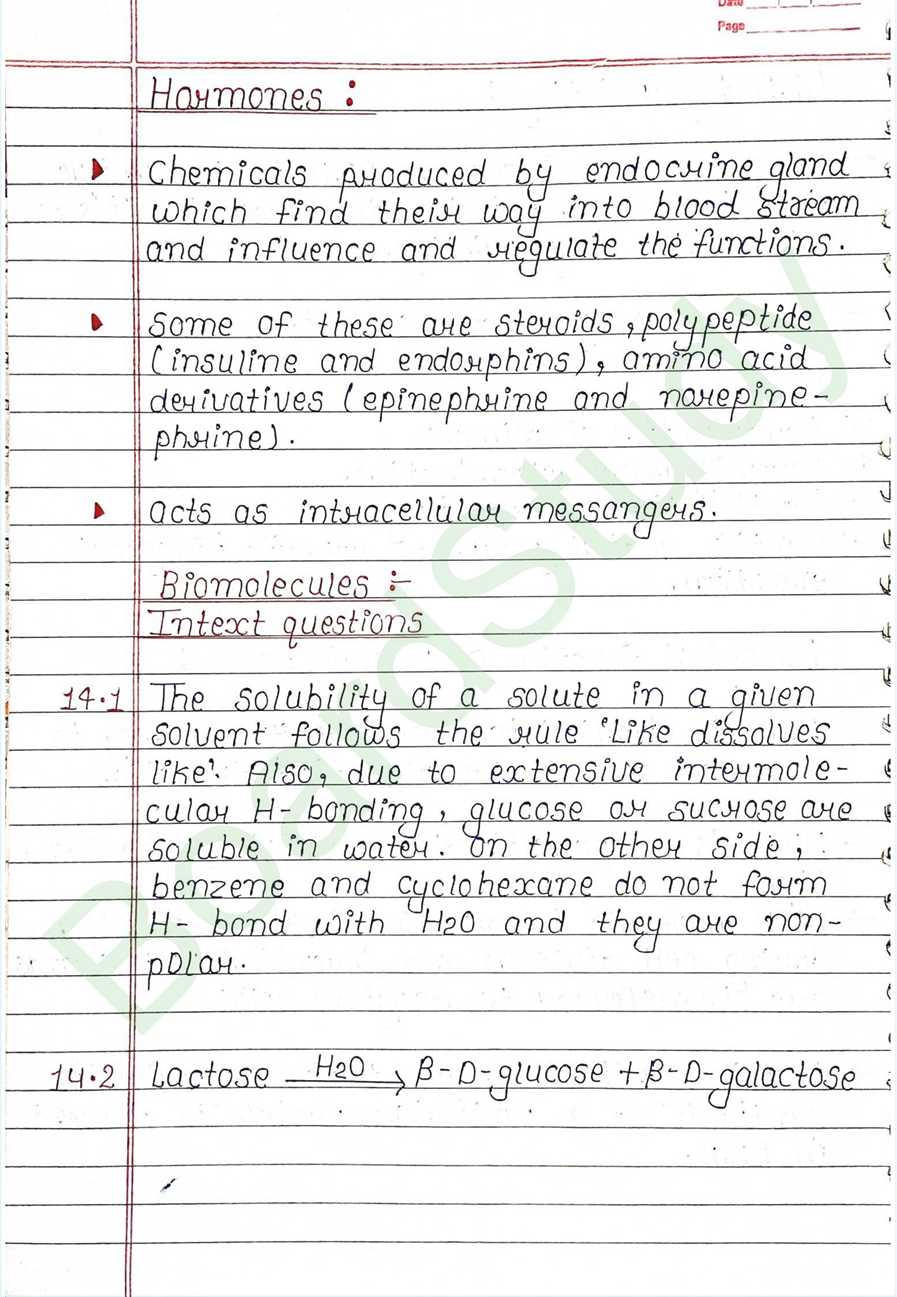 Date
Page
Hormones :
Chemicals produced by endocrine gland
which find their way into blood stream
and influence and regulate the functions.
Some of these are steroids, polypeptide
(insuline and endorphins), amino acid
derivatives (epinephrine and norepine-
phrine).
acts as intracellular messangers.
Biomolecules :-
Intext questions
14.1 The solubility of a solute in a given
solvent follows the rule 'Like dissolves
like'. Also, due to extensive intermole-
cular H-bonding, glucose or sucrose are
soluble in water. on the other side,
benzene and cyclohexane do not form
H-bond with H2O and they are non-
polar.
14.2 Lactose H2O → β-D-glucose + β-D-galactose
BoardStudy